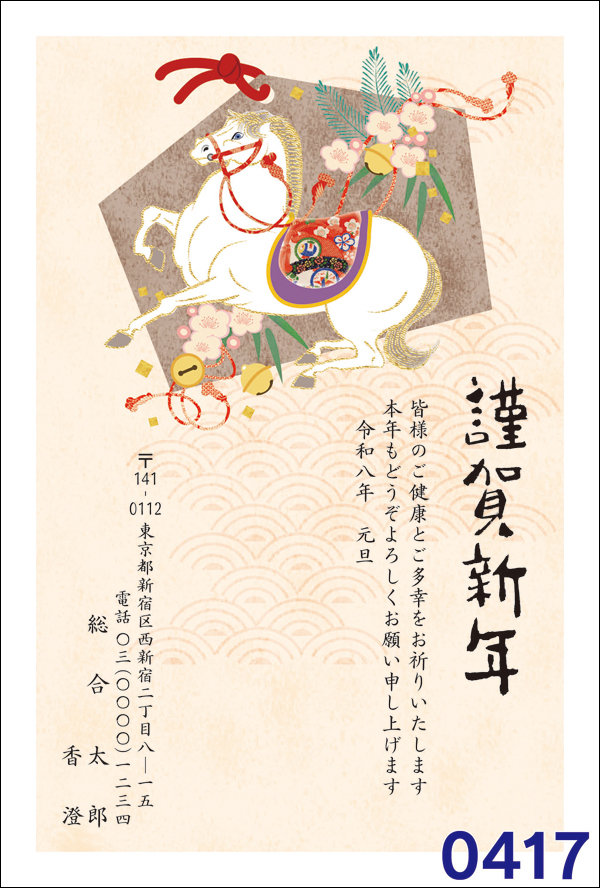 謹賀新年
皆様のご健康とご多幸をお祈りいたします
本年もどうぞよろしくお願い申し上げます
令和八年 元旦
〒141-0112
東京都新宿区西新宿二丁目八―一五
電話 〇三(〇〇〇〇)一二三四
総合太郎
香澄
0417